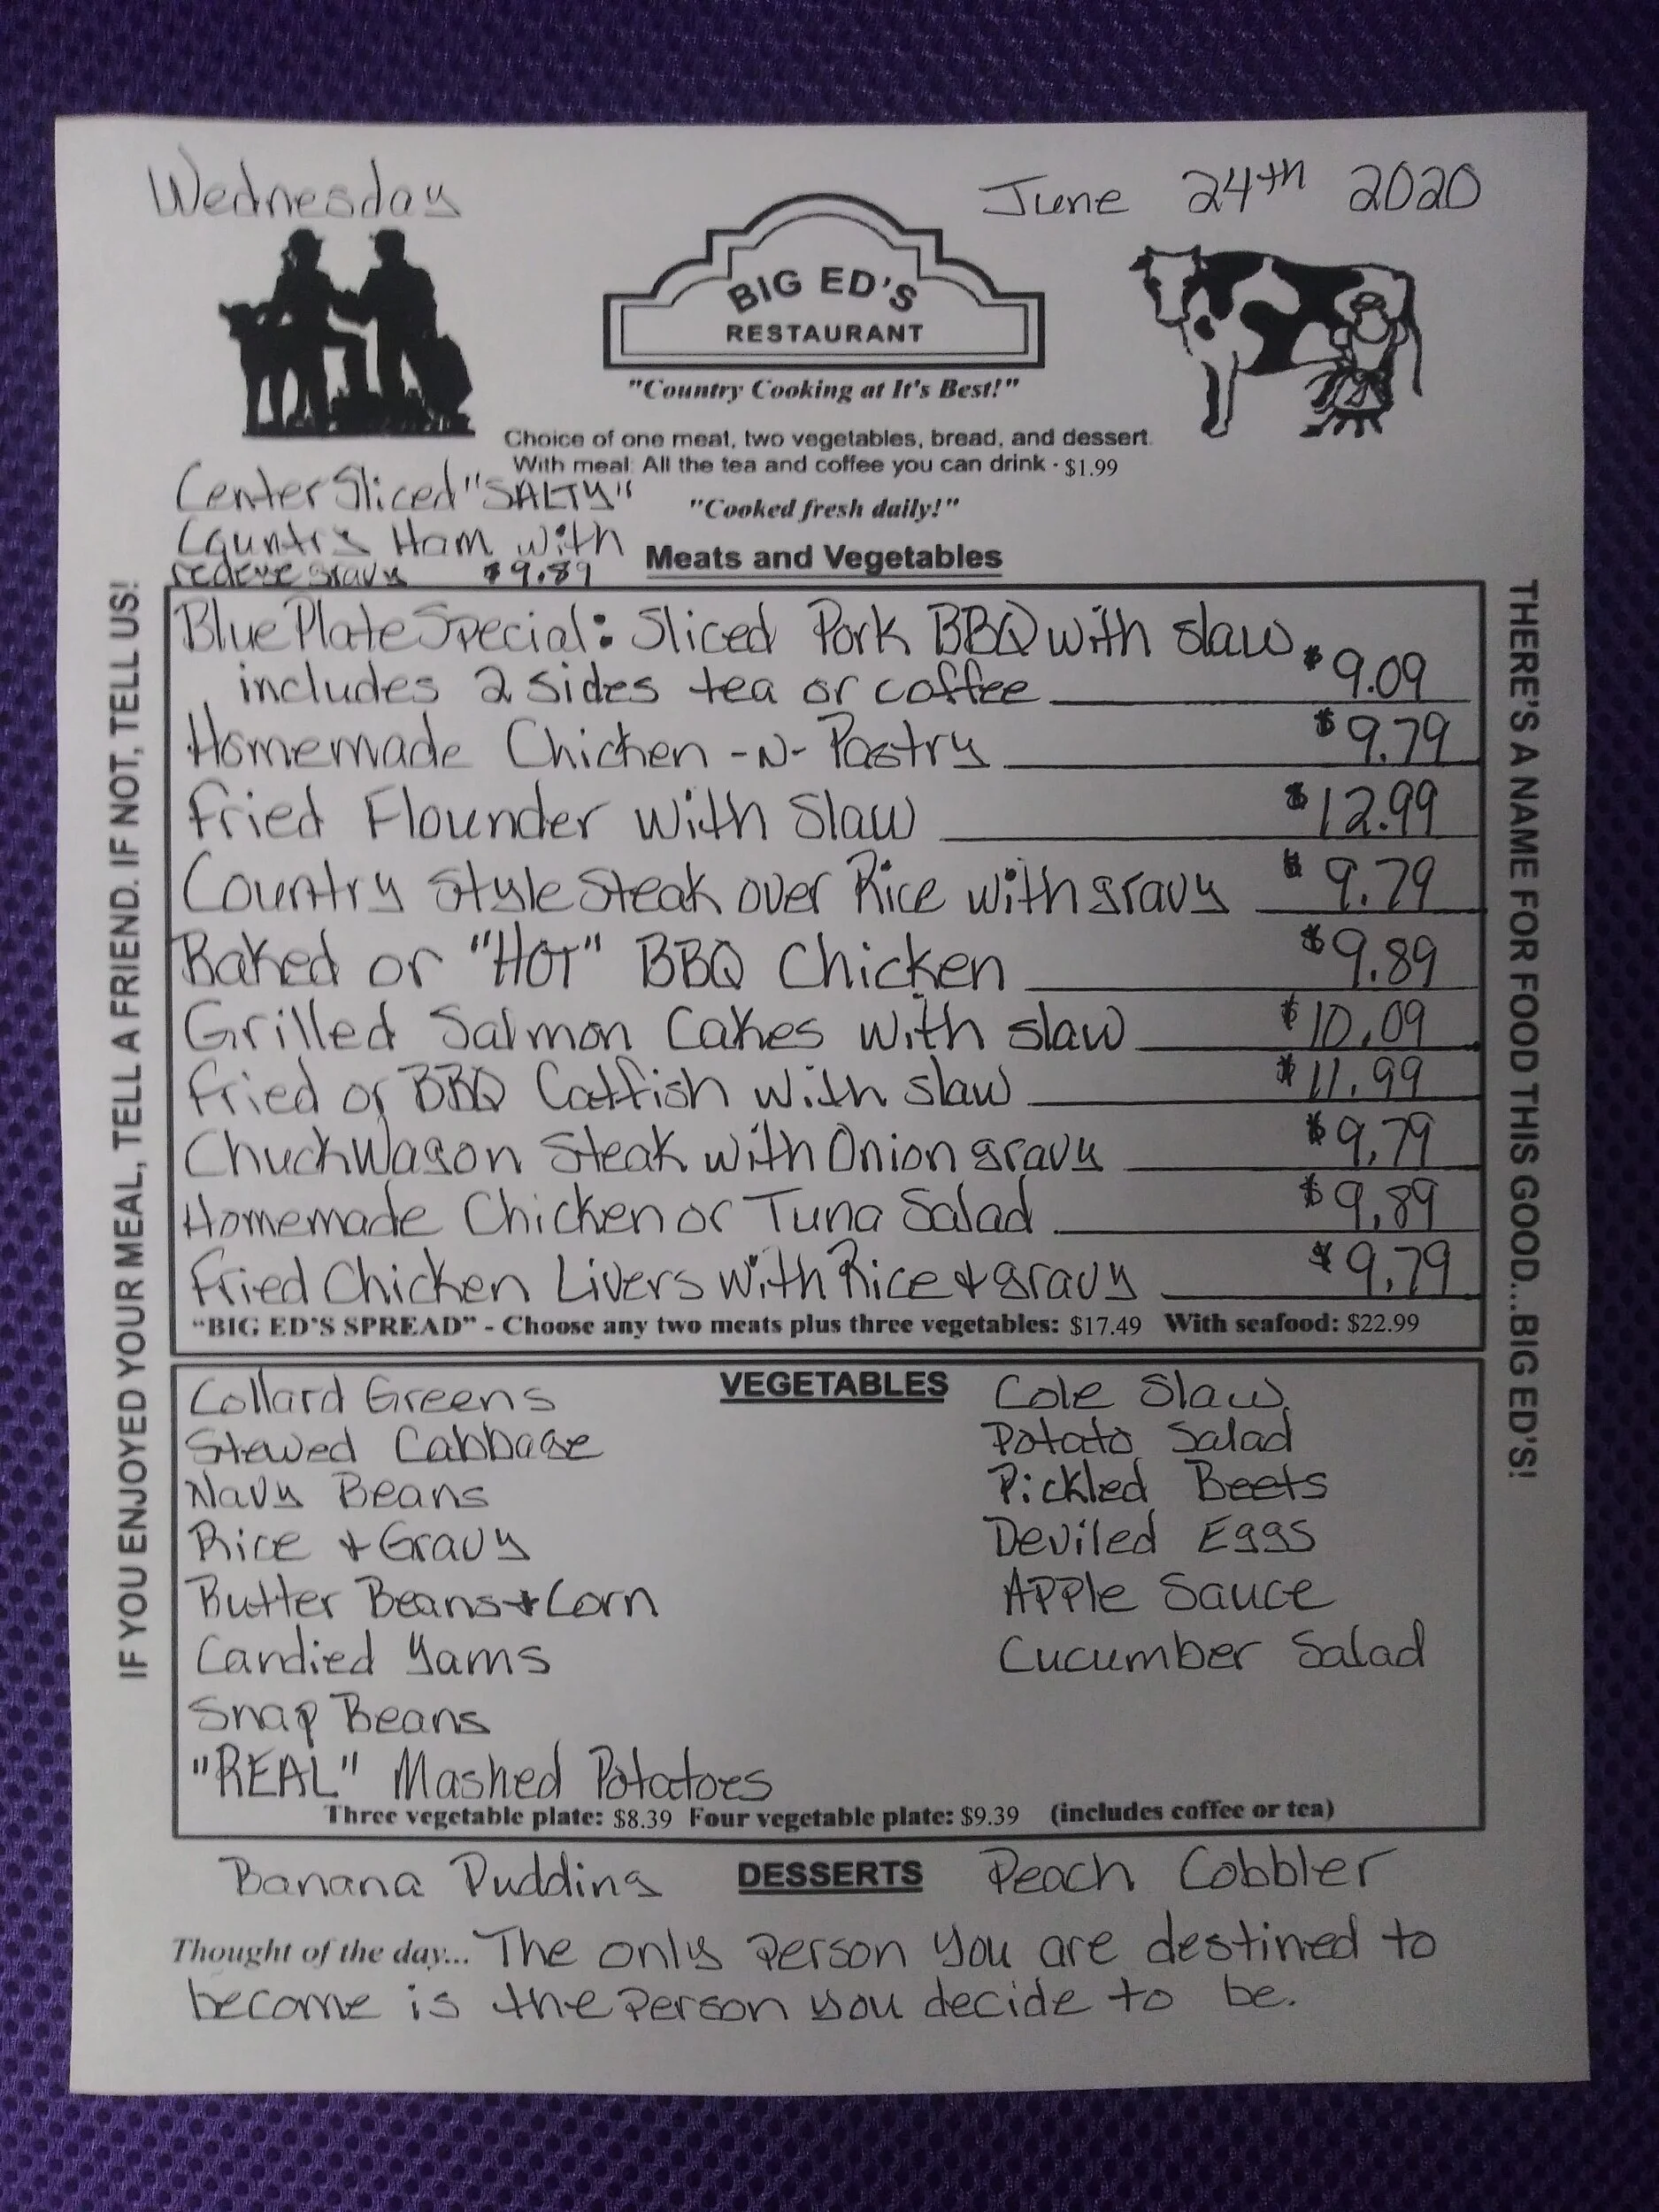 Wednesday
June 24th 2020
BIG ED'S
RESTAURANT
"Country Cooking at It's Best!"
Choice of one meat, two vegetables, bread, and dessert.
With meal: All the tea and coffee you can drink - $1.99
"Cooked fresh daily!"
Center Sliced "SALTY"
Country Ham with
redeye gravy $9.89
Meats and Vegetables
Blue Plate Special: Sliced Pork BBQ with slaw
includes 2 sides tea or coffee $9.09
Homemade Chicken -N- Pastry $9.79
Fried Flounder with Slaw $12.99
Country Style Steak over Rice with gravy $9.79
Baked or "HOT" BBQ Chicken $9.89
Grilled Salmon Cakes with slaw $10.09
Fried or BBQ Catfish with slaw $11.99
Chuck Wagon Steak with Onion gravy $9.79
Homemade Chicken or Tuna Salad $9.89
Fried Chicken Livers with Rice & gravy $9.79
"BIG ED'S SPREAD" - Choose any two meats plus three vegetables: $17.49 With seafood: $22.99
VEGETABLES
Collard Greens
Stewed Cabbage
Navy Beans
Rice & Gravy
Butter Beans & Corn
Candied Yams
Snap Beans
"REAL" Mashed Potatoes
Cole Slaw
Potato Salad
Pickled Beets
Deviled Eggs
Apple Sauce
Cucumber Salad
Three vegetable plate: $8.39 Four vegetable plate: $9.39 (includes coffee or tea)
Banana Pudding DESSERTS Peach Cobbler
Thought of the day... The only person you are destined to
become is the person you decide to be.
IF YOU ENJOYED YOUR MEAL, TELL A FRIEND. IF NOT, TELL US!
THERE'S A NAME FOR FOOD THIS GOOD...BIG ED'S!